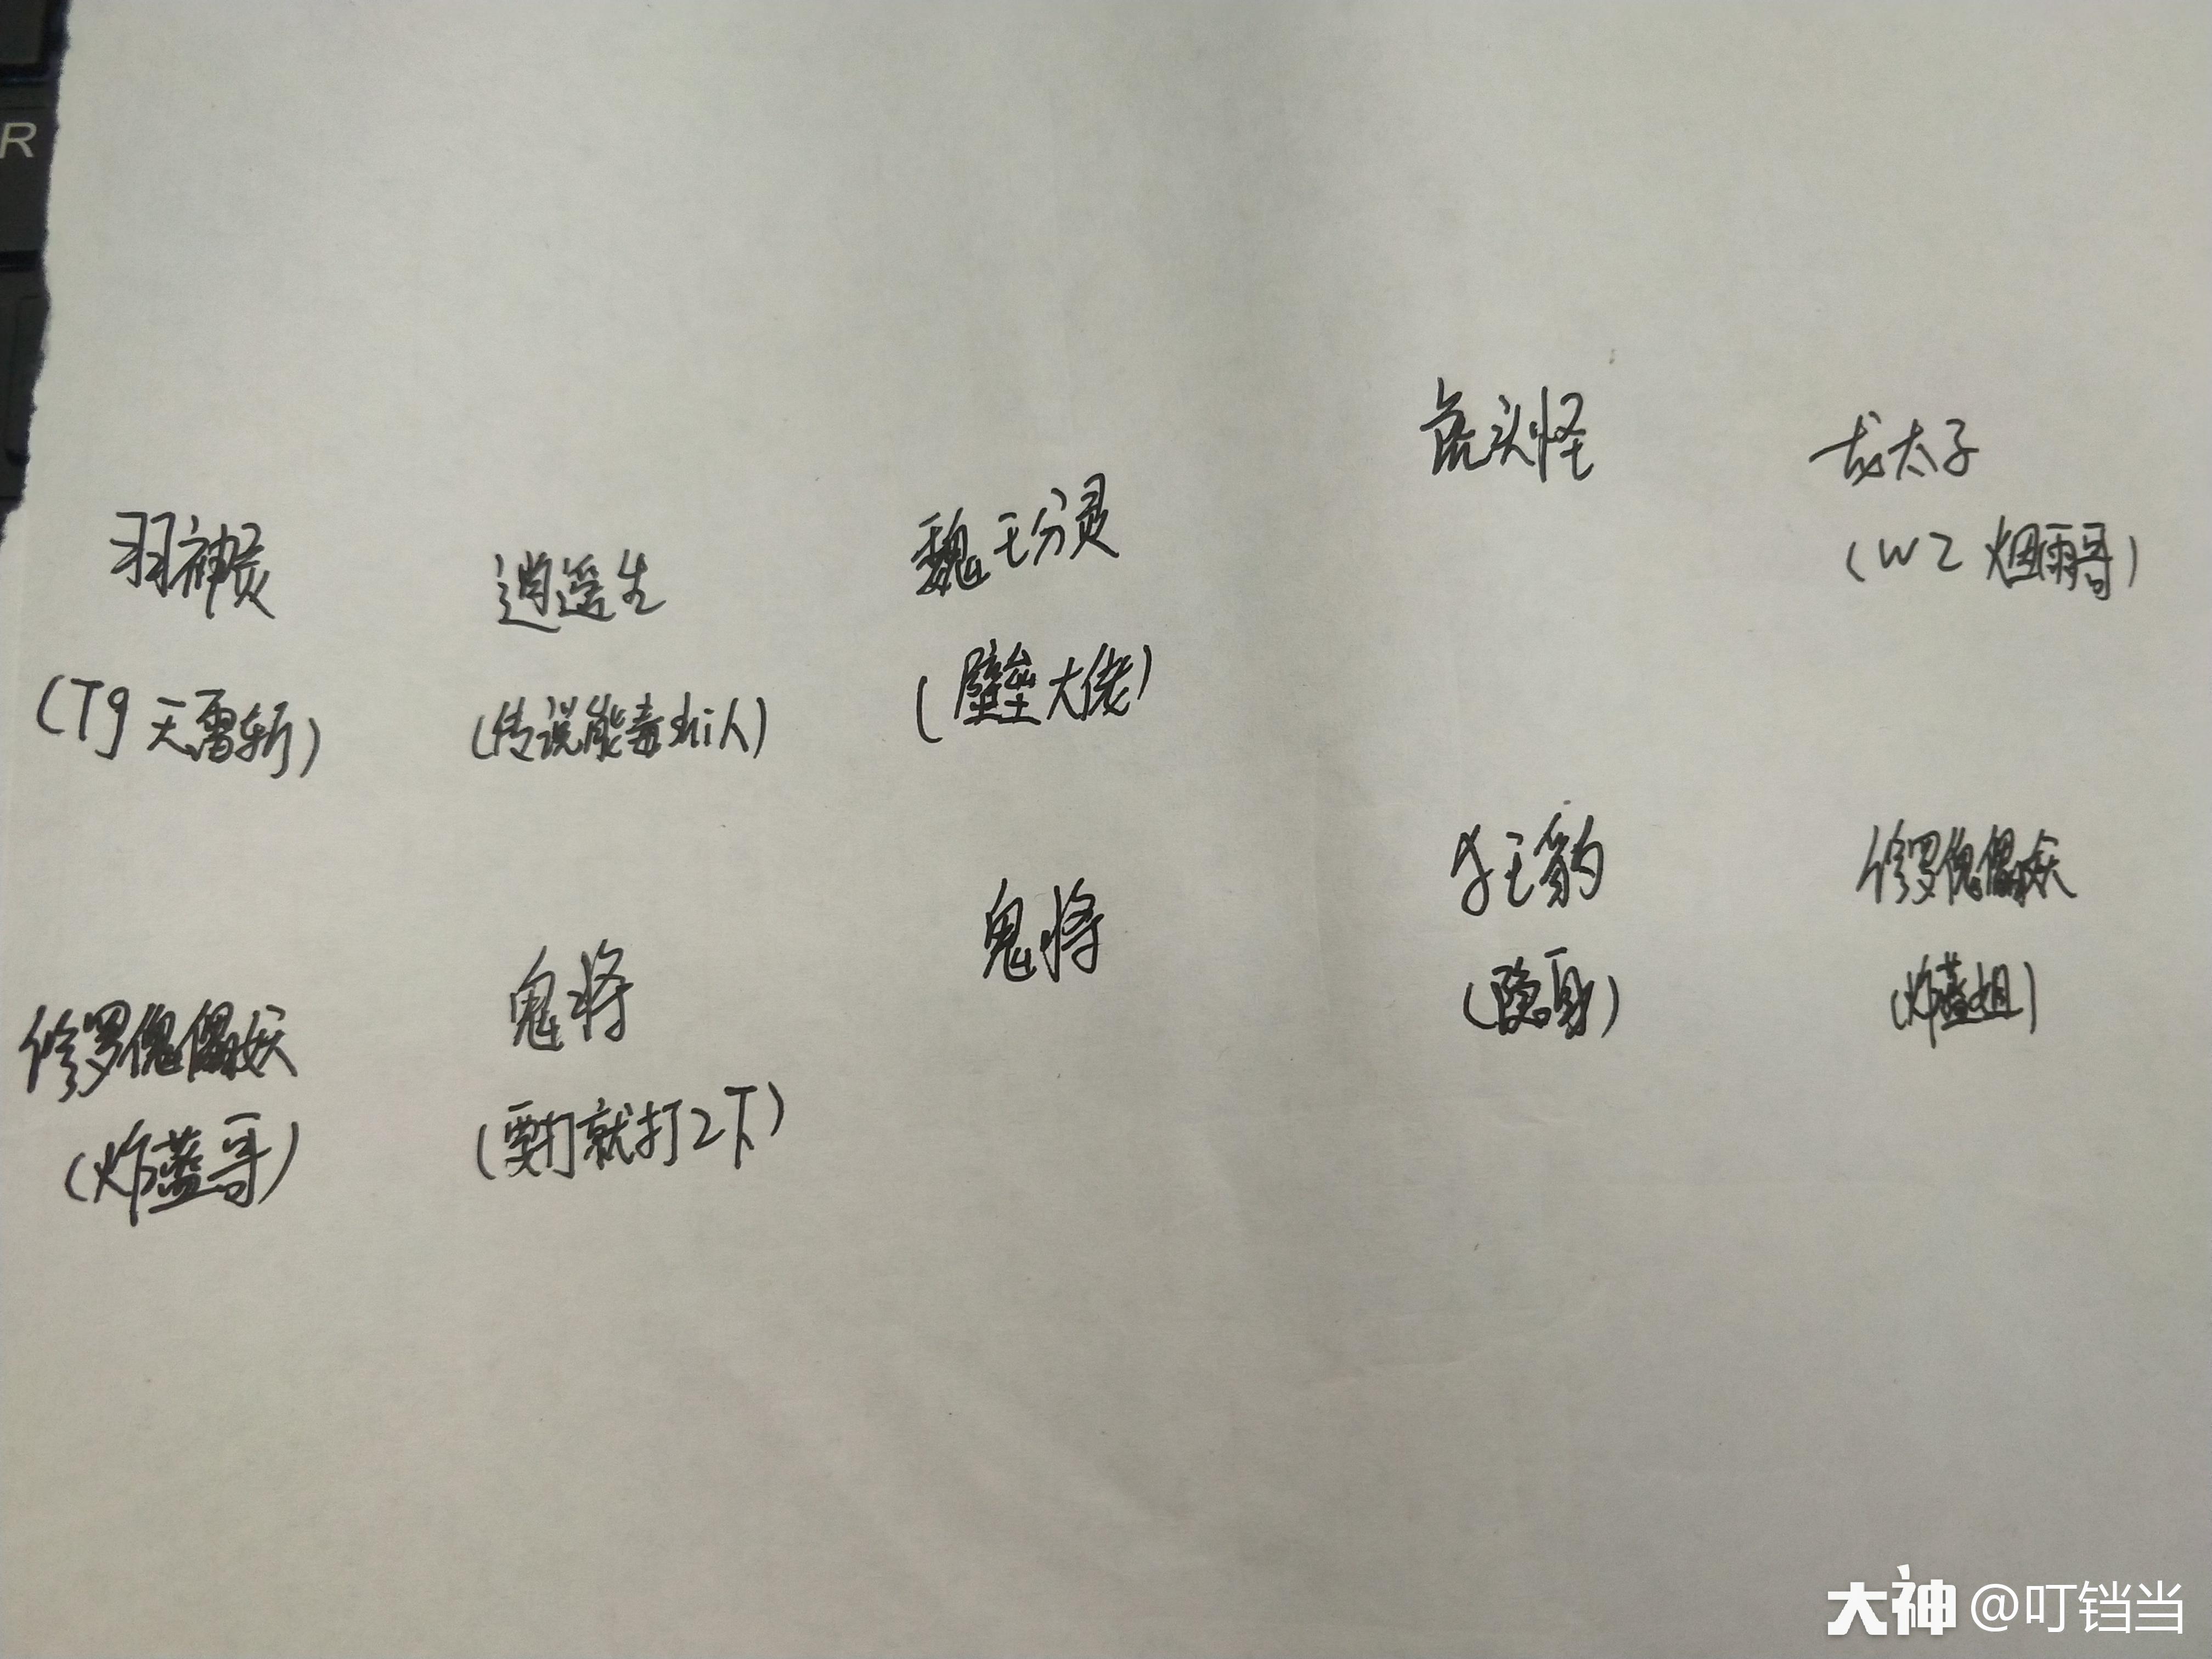 R
羽神灵 逍遥生 巍无分灵 虎头怪 龙太子
(Tg 天雷斩) (传说能毒shi人) (壁垒大佬) (WZ 烟雨哥)
修罗傀儡妖 鬼将 鬼将 狂豹 修罗傀儡妖
(炸蓝哥) (要打就打2下) (隐身) (炸蓝姐)
大神 @叮铛当